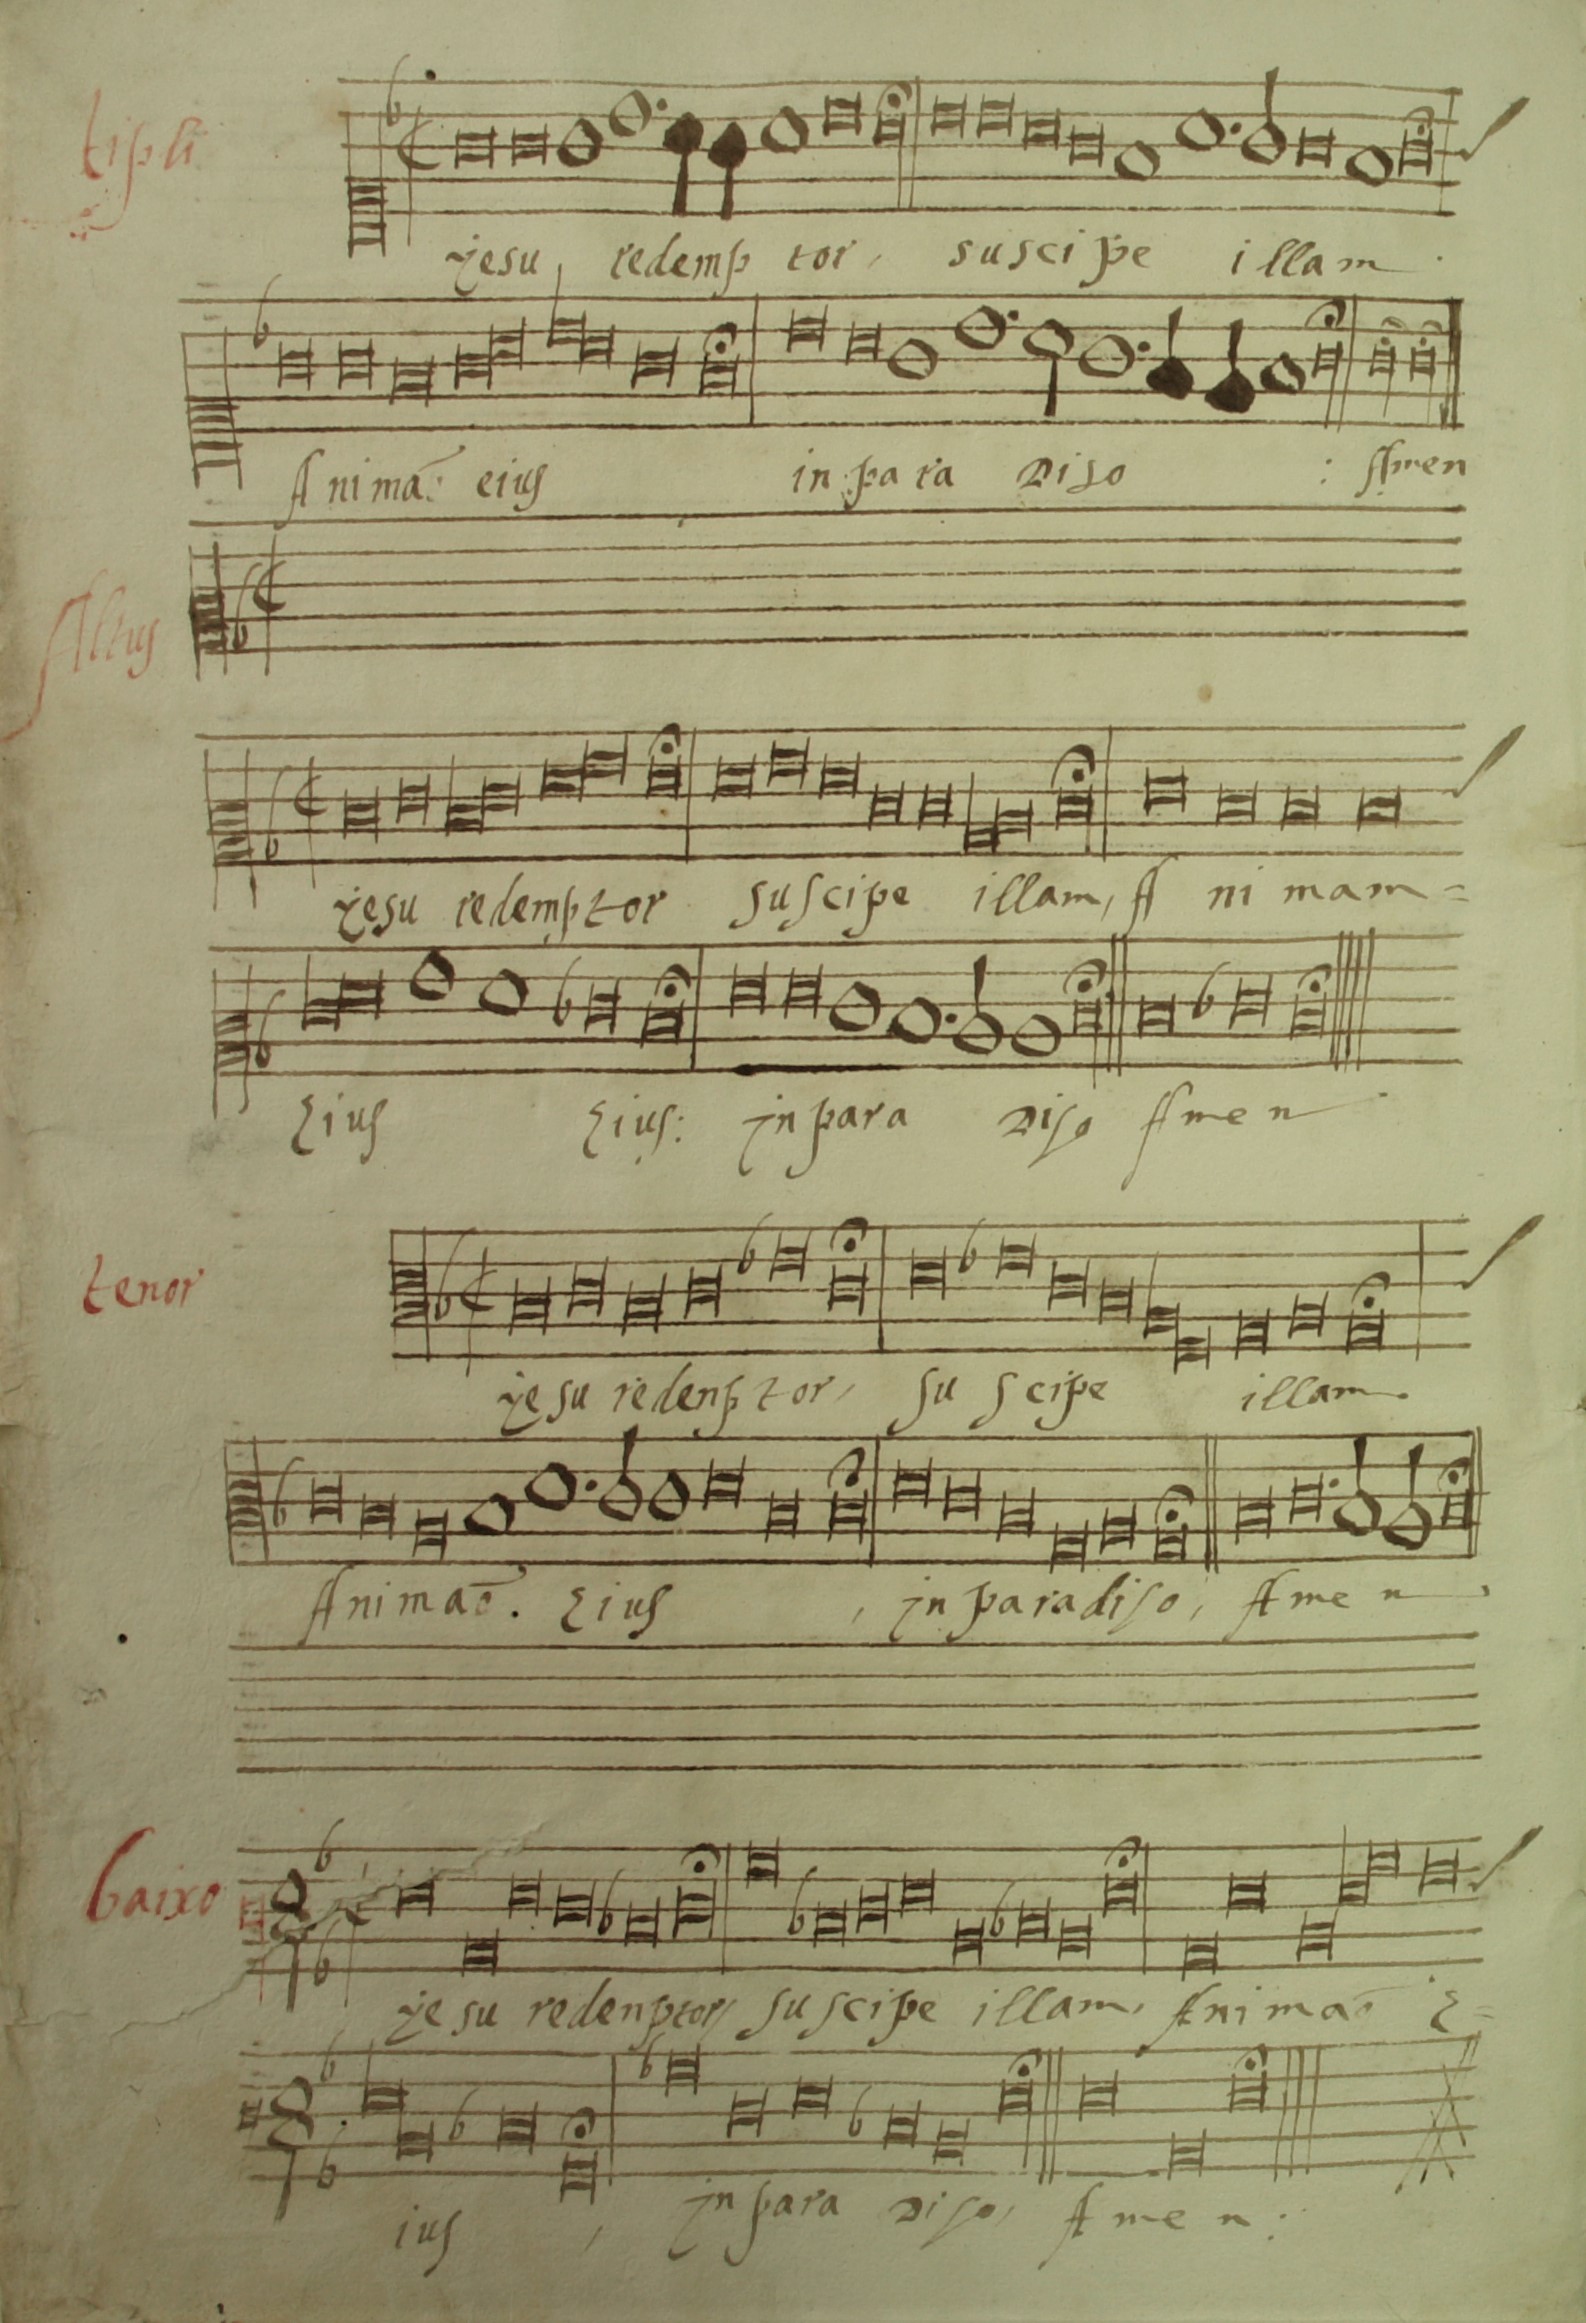 tipli
yesu, redemp tor, suscipe illam.
Animã: eius in para Diso : Amen
Altus
yesu redemptor suscipe illam, A ni mam=
Eius Eius: in para Diso Amen
tenor
yesu redenptor, su scipe illam.
Animaõ. Eius, in paradiso, Amen.
baixo
yesu redenptor, suscipe illam, Animaõ E=
ius, in para Diso, Amen: